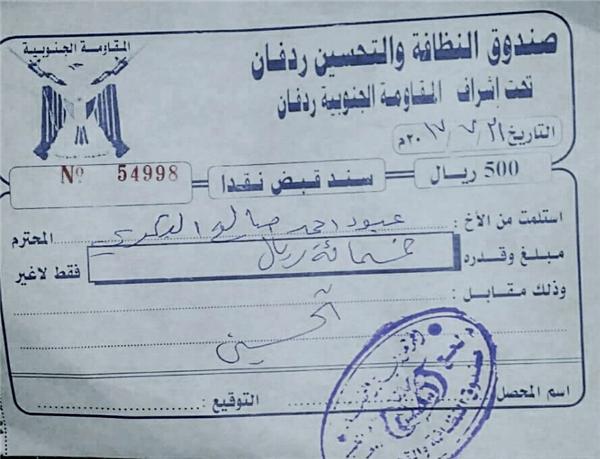 المقاومة الجنوبية
صندوق النظافة والتحسين ردفان
تحت إشراف المقاومة الجنوبية ردفان
التاريخ ٢١/٧/٢٠١٧م
500 ريال
سند قبض نقدا
Nº 54998
استلمت من الأخ : عبود احمد صالح المحترم
مبلغ وقدره خمسمائة ريال فقط لاغير
وذلك مقابل :
تحسين
اسم المحصل التوقيع :